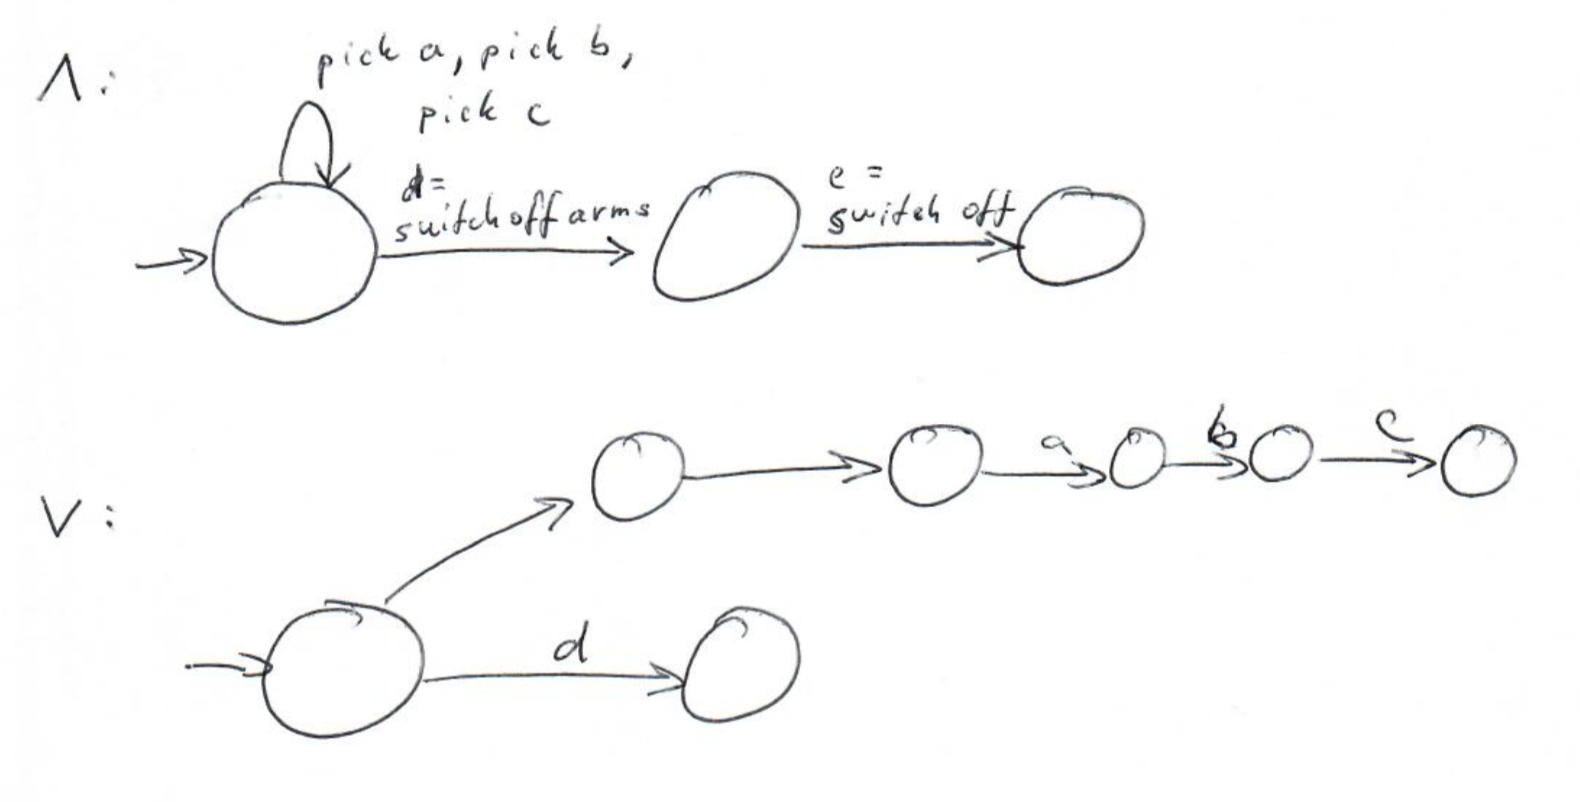 Λ:
pick a, pick b,
pick c
d=
switch off arms
e =
switch off
V:
a
b
c
d